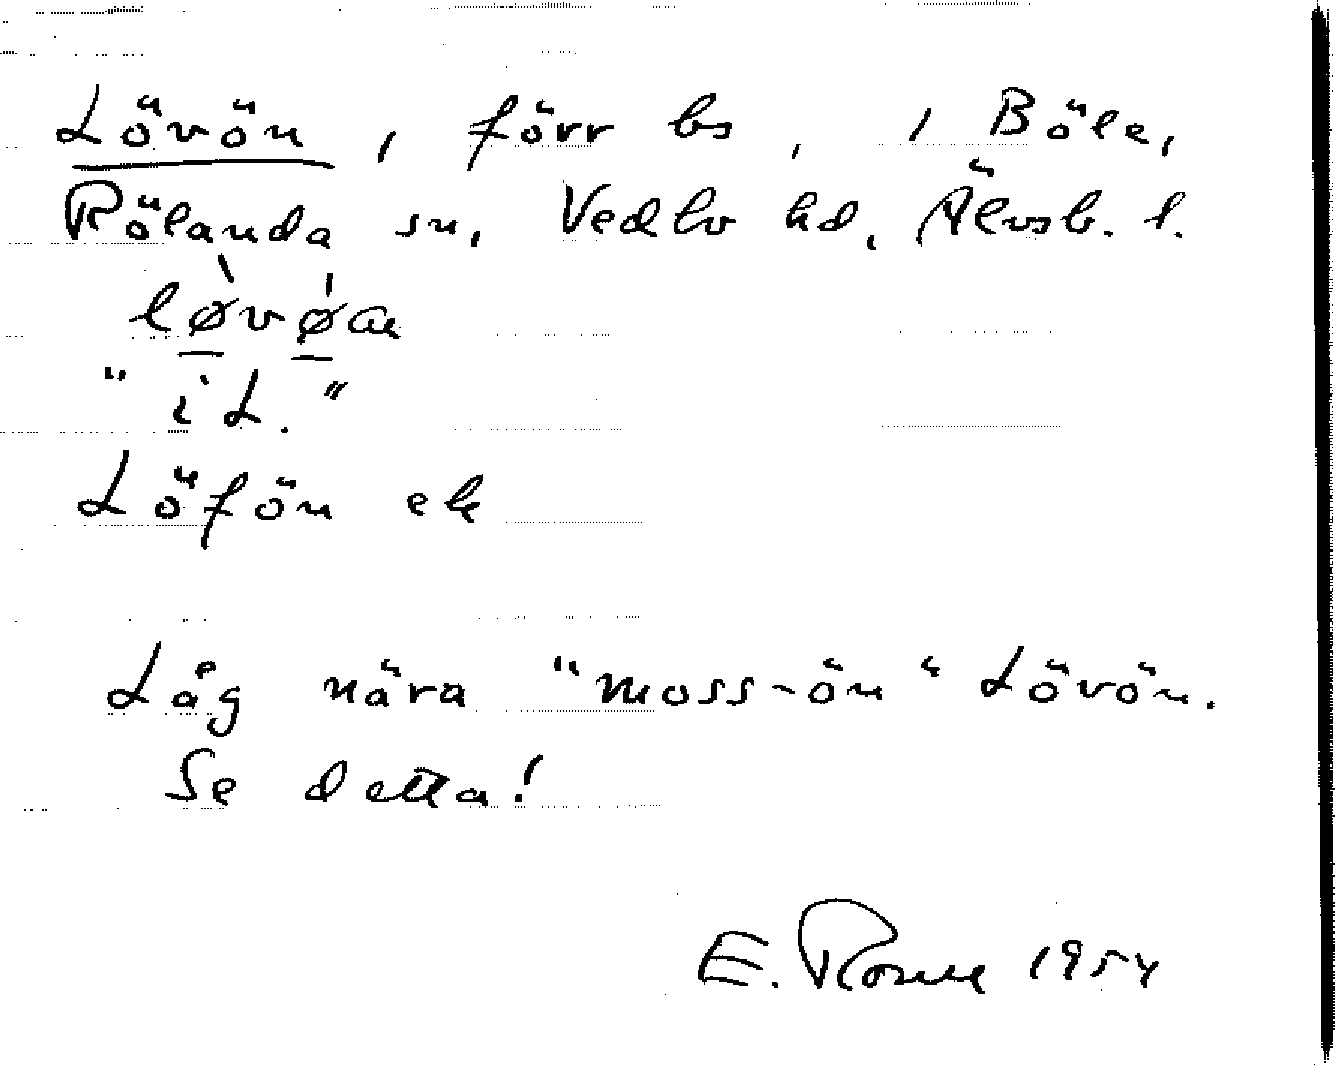 Lövön, förr bs, i Böle,
Rölanda sn, Vedbo hd, Älvsb. l.
lø̠̀vǿ̠a
"i L."
Löfön ek
Låg nära "moss-ön" Lövön.
Se detta!
E. 1954